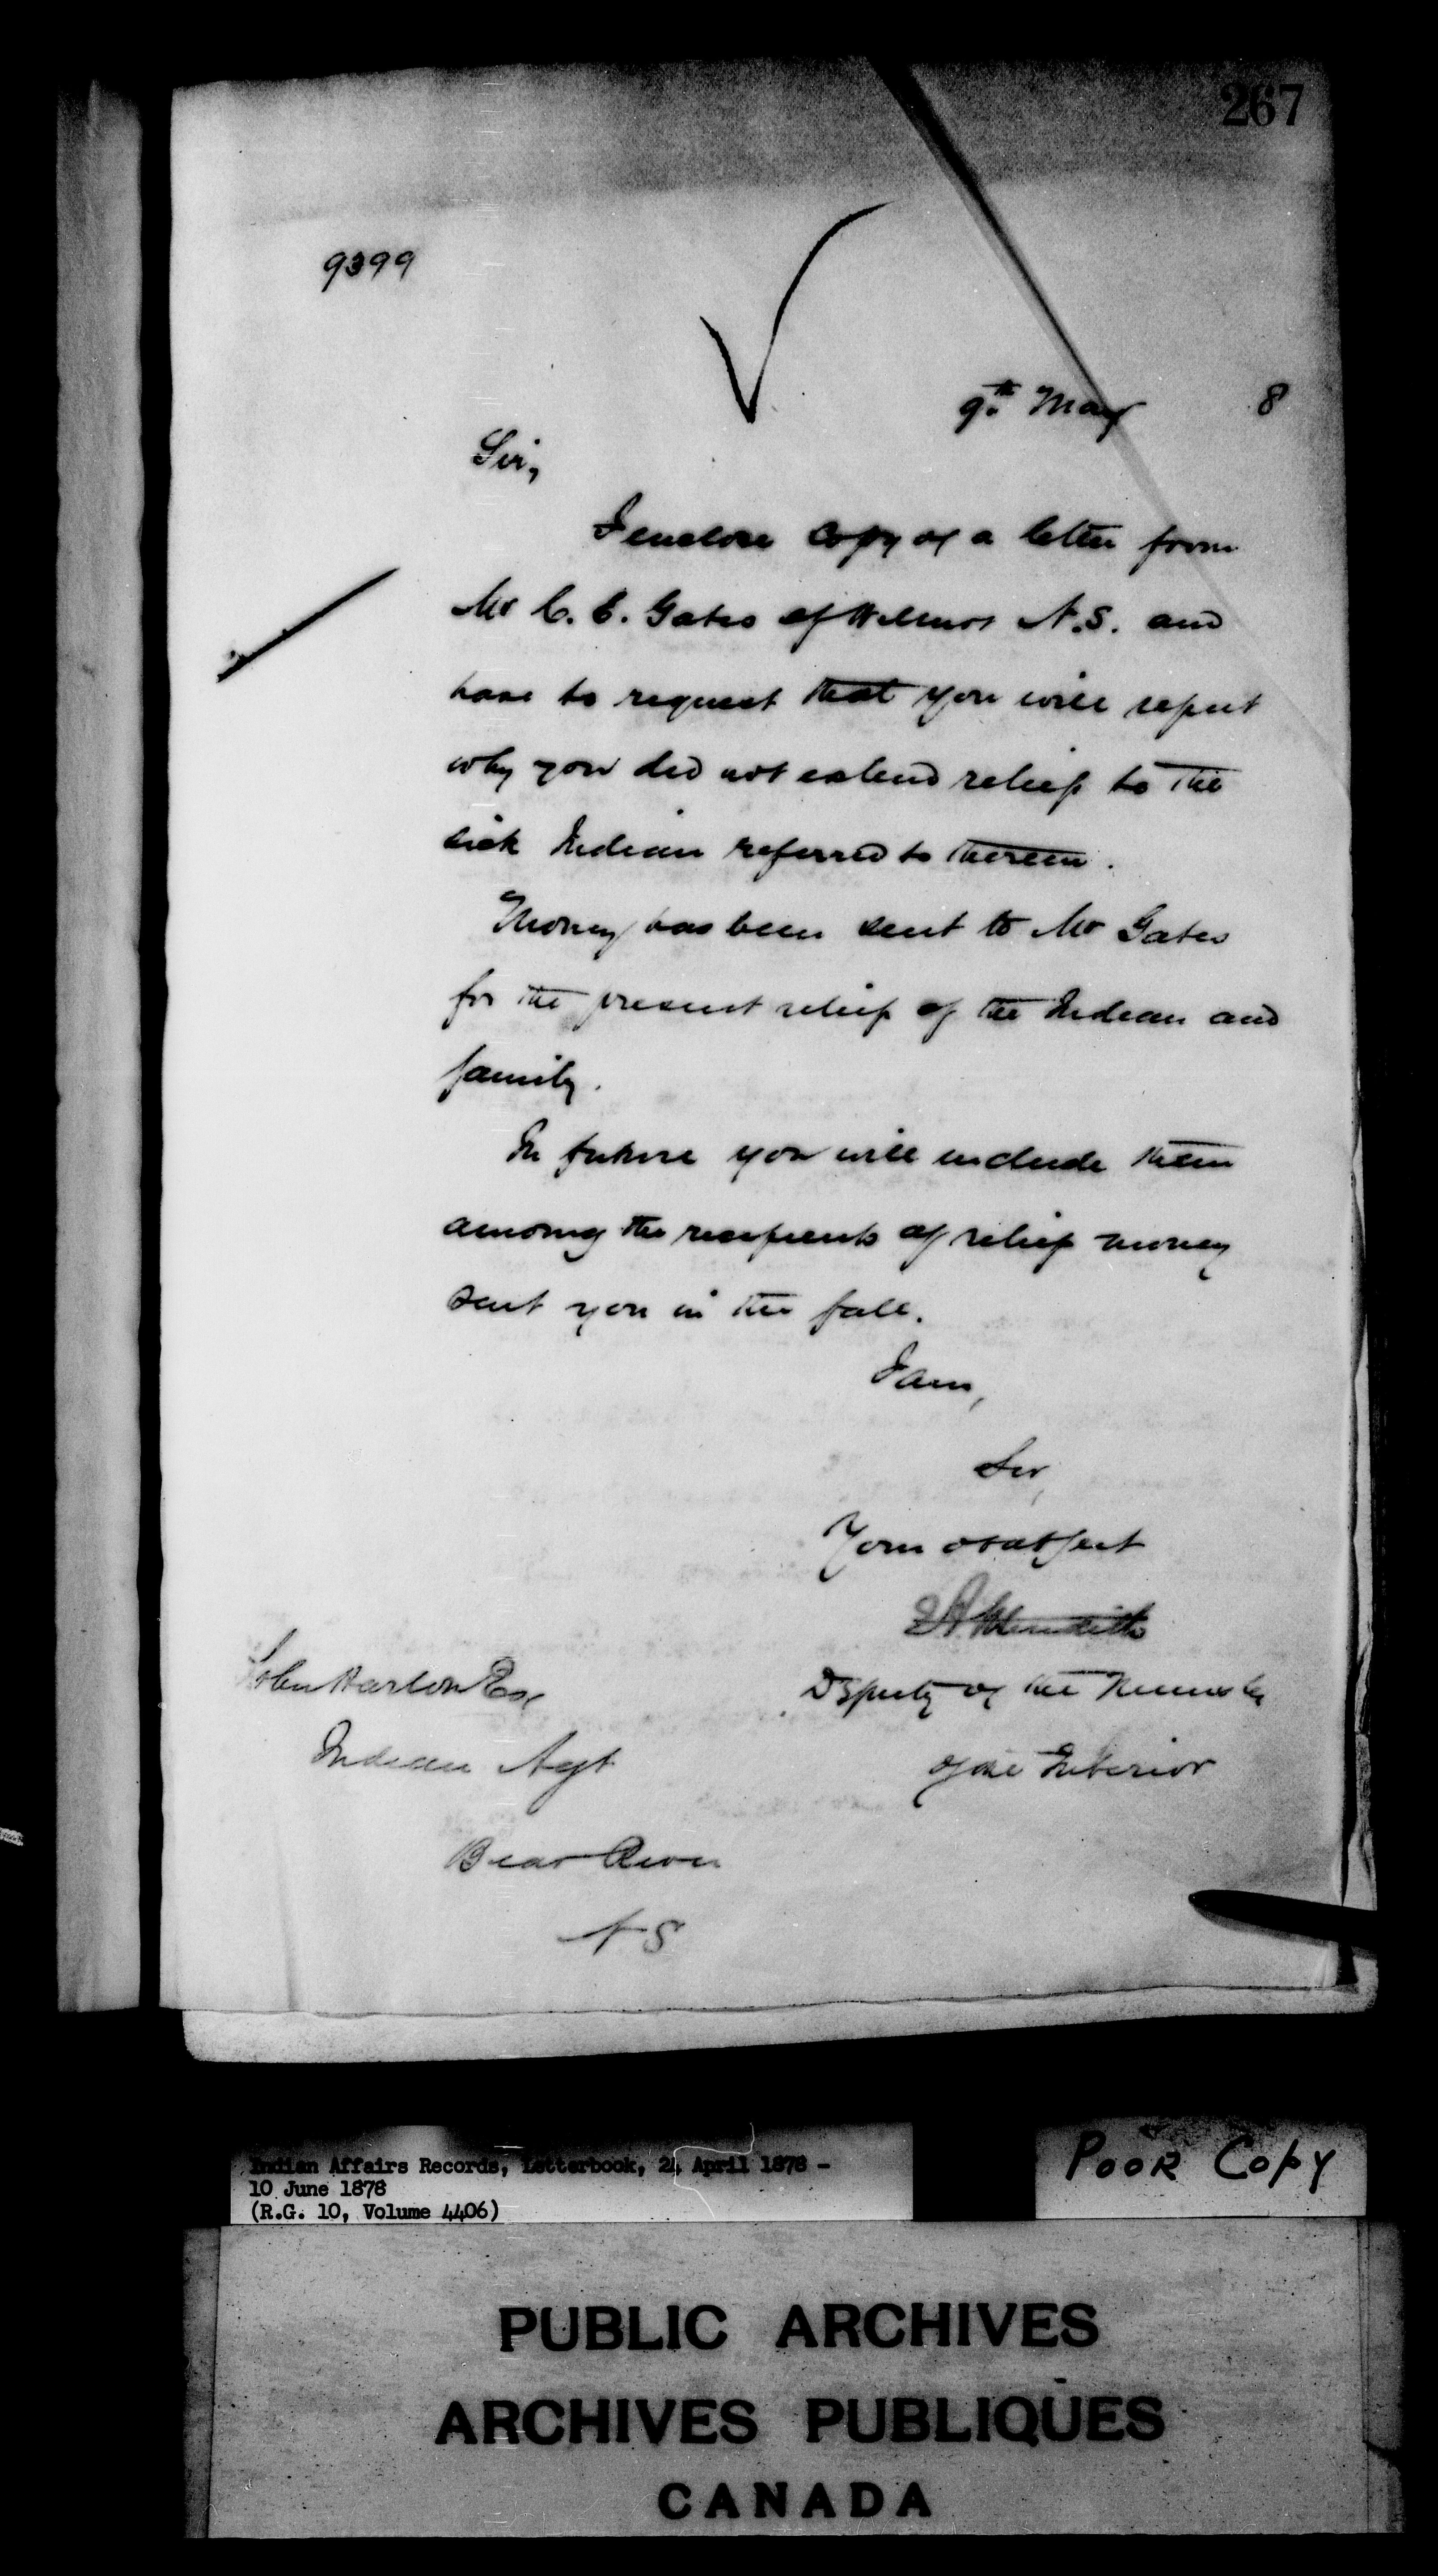 267
9399
9th May 8
Sir,
I enclose copy of a letter from
Mr C. C. Gates of Wilmot N.S. and
have to request that you will report
why you did not extend relief to the
sick Indian referred to therein.
Money has been sent to Mr Gates
for the present relief of the Indian and
family.
In future you will include them
among the recipients of relief money
sent you in the fall.
I am,
Sir,
Your obdt Servt
E A Meredith
Deputy of the Minister
of the Interior
John Harlow Esq
Indian Agt
Bear River
N S
Indian Affairs Records, Letterbook, 24 April 1878 -
10 June 1878
(R.G. 10, Volume 4406)
POOR COPY
PUBLIC ARCHIVES
ARCHIVES PUBLIQUES
CANADA